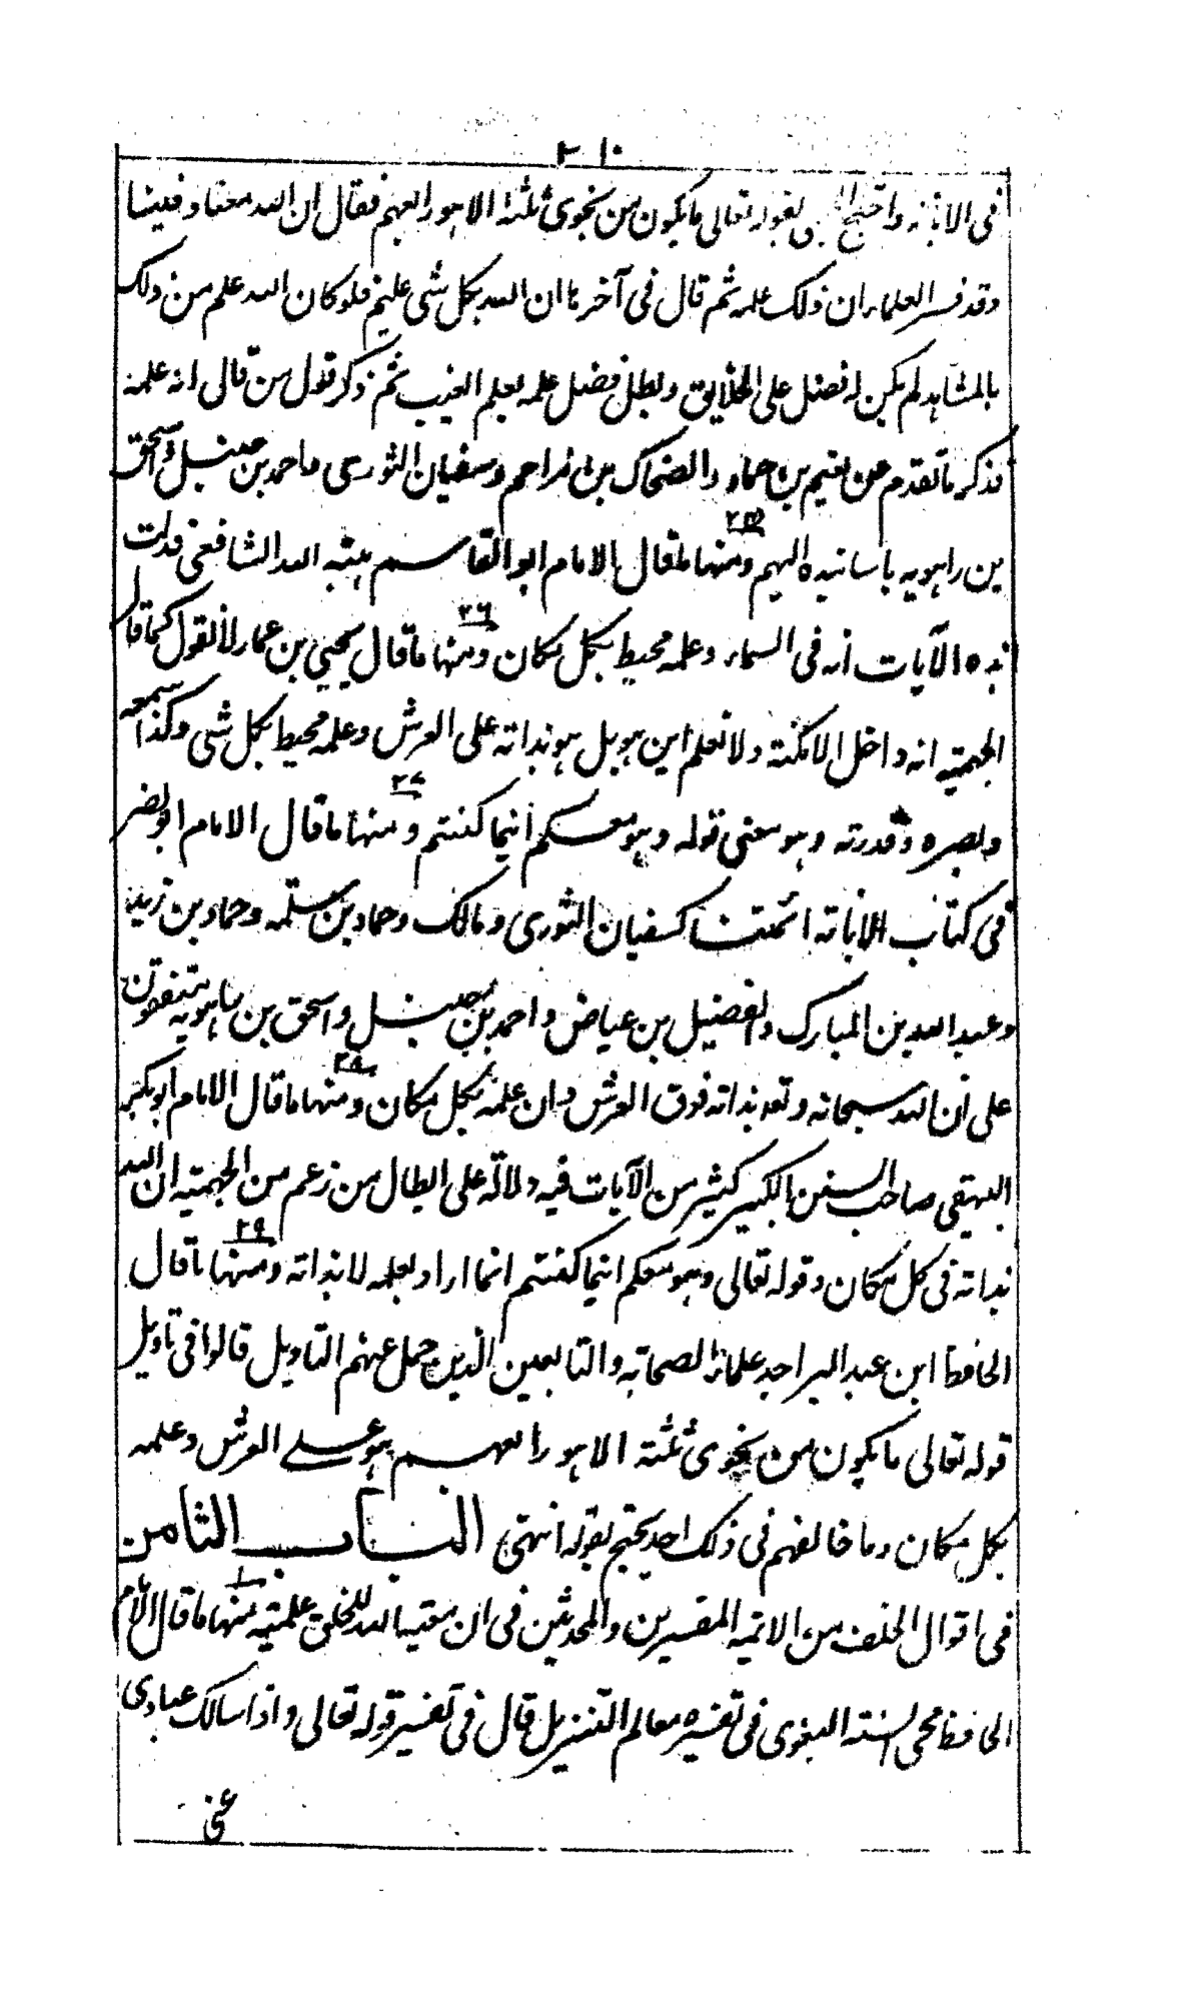 ٢١٠
فى الابانة واحتج بقوله تعالى ما يكون من نجوى ثلثة الا هو رابعهم فقال ان الله معنا وفينا
وقد فسر العلماء ان ذلك علمه ثم قال فى آخرها ان الله بكل شى عليم فلو كان الله علم من ذلك
بالمشاهد لم يكن له فضل على الخلايق وبطل فضل علمه بعلم الغيب ثم ذكر قول من قال انه علمه
فذكر ما تقدم عن نعيم بن حماد والضحاك بن مزاحم وسفيان الثورى واحمد بن حنبل واسحق
بن راهويه باسانيده اليهم ومنها ما قال الامام ابو القاسم هبة الله الشافعى فدلت
هذه الآيات انه فى السماء وعلمه محيط بكل مكان ومنها ٢٦ ما قال يحيى بن عمار لا نقول كما قال
الجهمية انه داخل الامكنة ولا نعلم اين هو بل هو بذاته على العرش وعلمه محيط بكل شى وكذا سمعه
وبصره وقدرته وهو معنى قوله وهو معكم اينما كنتم ومنها ٢٧ ما قال الامام ابو نصر
فى كتاب الابانة ائمتنا كسفيان الثورى ومالك وحماد بن سلمه وحماد بن زيد
وعبد الله بن المبارك والفضيل بن عياض واحمد بن حنبل واسحق بن راهويه متفقون
على ان الله سبحانه وتعه بذاته فوق العرش وان علمه بكل مكان ومنها ٢٨ ما قال الامام ابو بكر
البيهقى صاحب السنن الكبير كثير من الآيات فيه دلالة على ابطال من زعم من الجهمية ان الله
بذاته فى كل مكان وقوله تعالى وهو معكم اينما كنتم انما اراد بعلمه لا بذاته ومنها ٢٩ ما قال
الحافظ ابن عبد البر اجمع علماء الصحابة والتابعين الذين حمل عنهم التاويل قالوا فى تاويل
قوله تعالى ما يكون من نجوى ثلثة الا هو رابعهم هو على العرش وعلمه
بكل مكان وما خالفهم فى ذلك احد يحتج بقوله انتهى الباب الثامن
فى اقوال الخلف من الائمه المفسرين والمحدثين فى ان معية الله للخلق علمية منها ١ ما قال الامام
الحافظ محى السنة البغوى فى تفسيره معالم التنزيل قال فى تفسير قوله تعالى واذا سالك عبادى
عنى